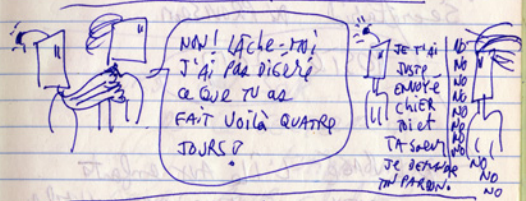 NON! LÂCHE-MOI
J'AI PAS DIGÉRÉ
CE QUE TU AS
FAIT VOILÀ QUATRE
JOURS!
JE T'AI
JUSTE
ENVOYÉ
CHIER
TOI ET
TA SOEUR
JE DEMANDE
TON PARDON.
NO
NO
NO
NO
NO
NO
NO
NO
NO
NO
NO